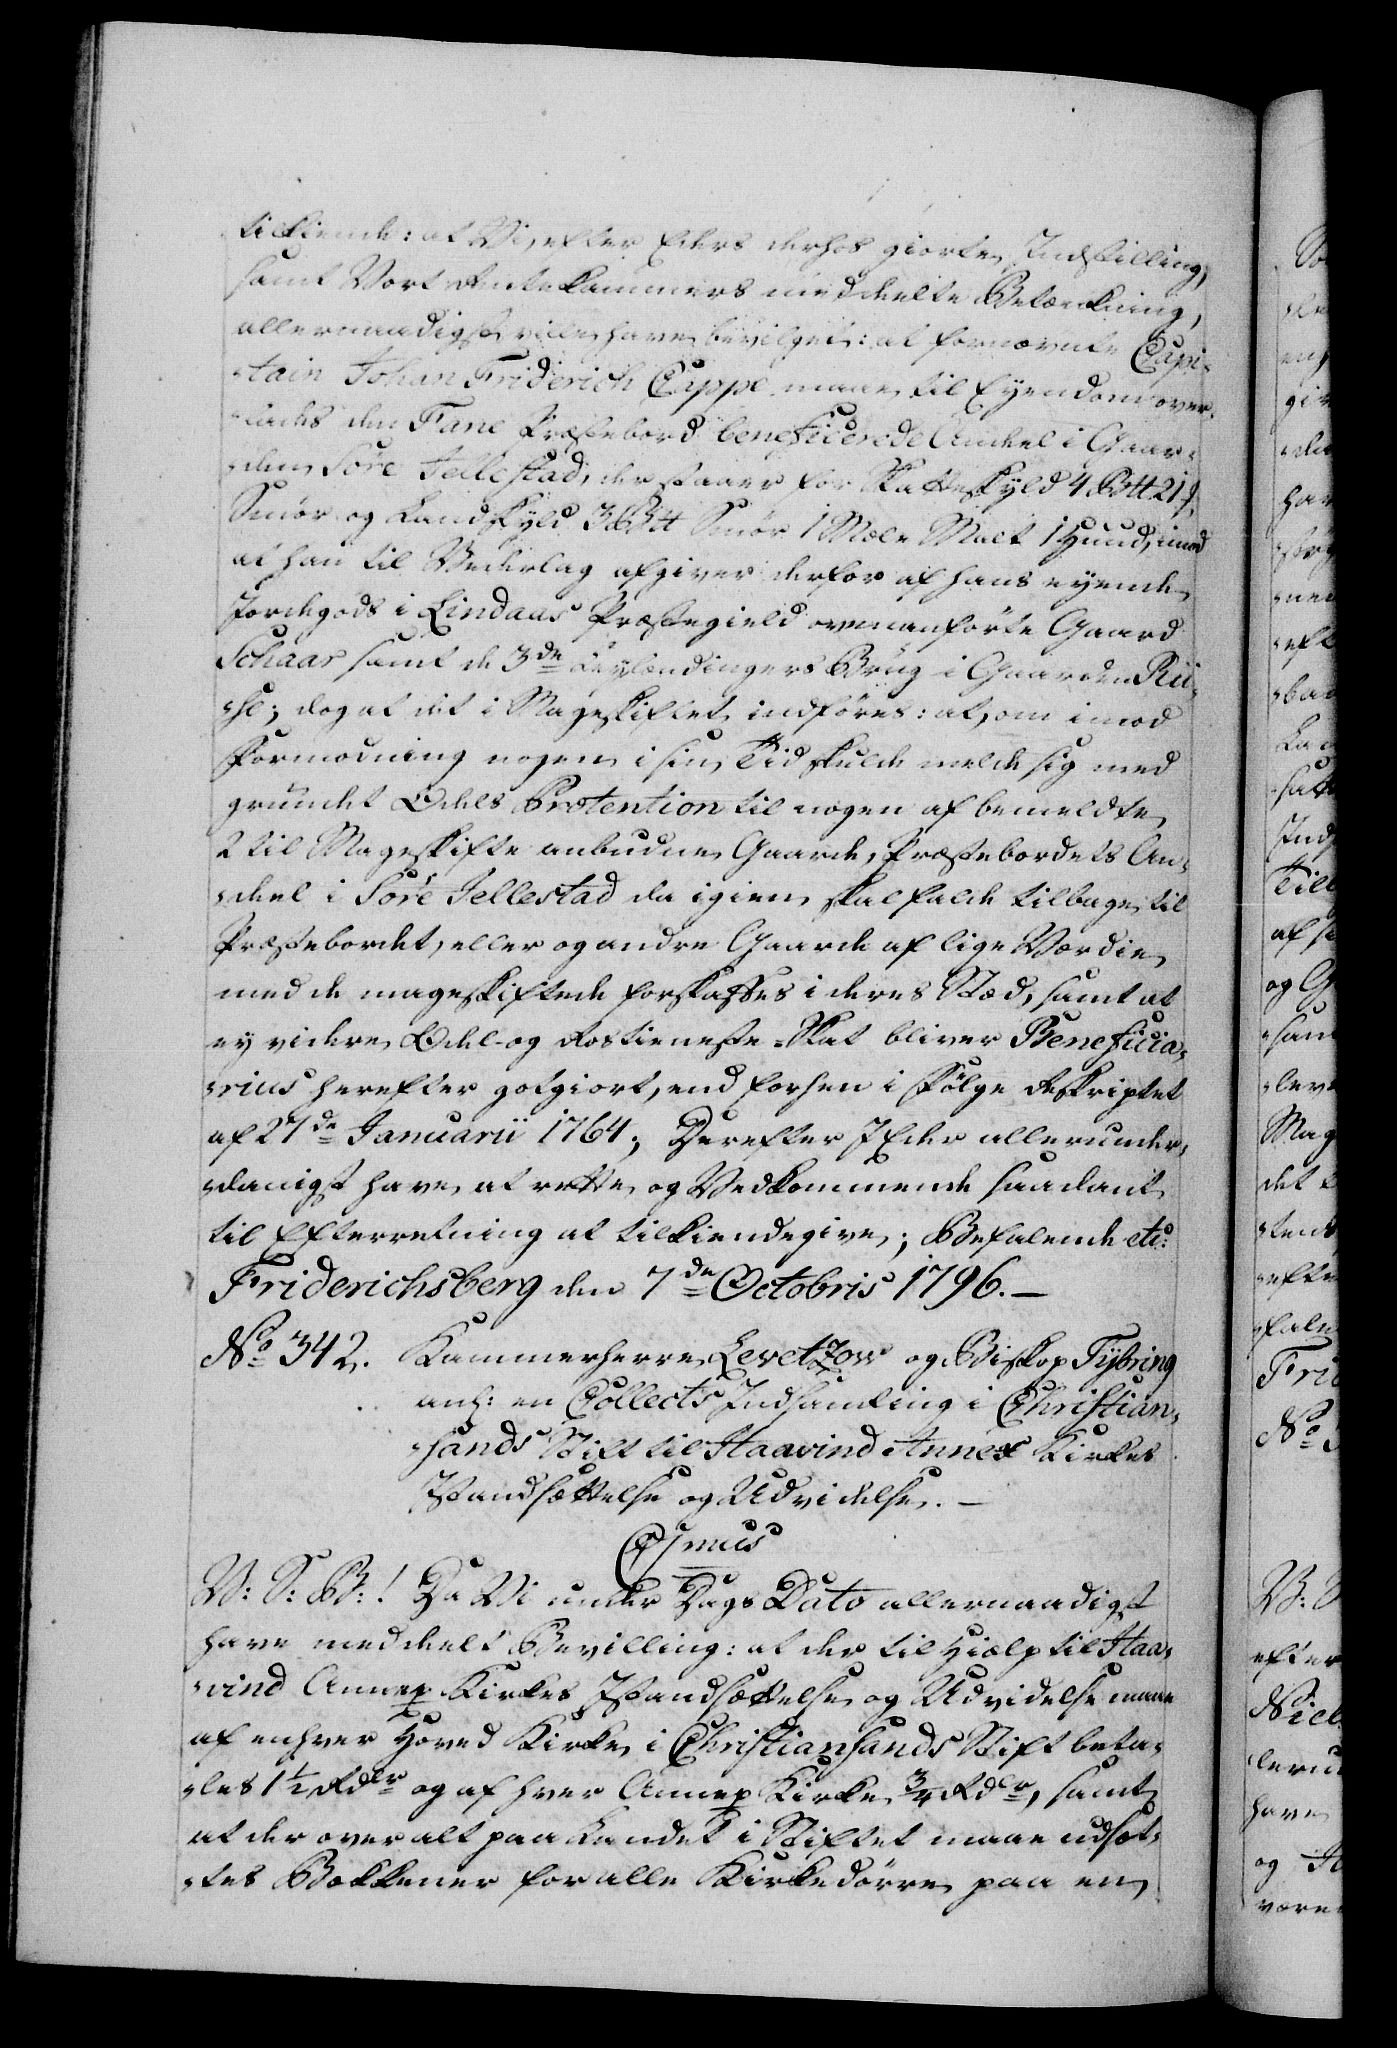 tilkiende: at Vi, efter Eders derhos giorte Indstilling,
samt Vort Rentekammers meddeelte Betænkning,
allernaadigst ville have bevilget: at fornævnte Capi-
-tain Johan Friderich Cappe maae til Eyendom over-
-lades den Fane Præstebord beneficerede Andeel i Gaar-
-den Søre Jellestad, der staaer for Skatteskyld 4
Smør og Landskyld 3 Smør 1 Mæle Malt 1 Huud, imod
at han til Vederlag afgiver derfor af hans eyende
Jordegods i Lindaas Præstegield ovenanførte Gaard
Schaar samt de 3de Leylændingers Brug i Gaarden Rii-
-se; dog at det i Mageskiftet indføres: at, om imod
Formodning nogen i sin Tid skulde melde sig med
grundet Odels Prætention til nogen af bemeldte
2 til Mageskifte anbudne Gaarde, Præstebordets An-
-deel i Søre Jellestad da igien skal falde tilbage til
Præstebordet, eller og andre Gaarde af lige Værdie
med de mageskiftede forskaffes i deres Stæd, samt at
ey videre Odel- og Rostieneste-Skat bliver Beneficia-
-rius herefter gotgiort, end forhen i Følge Rescriptet
af 27de Januarii 1764; Derefter I Eder allerunder-
-danigst have at rette og Vedkommende saadant
til Efterretning at tilkiendegive; Befalende etc:
Friderichsberg den 7de Octobris 1796.—
No 342. Kammerherre Levetzow og Biskop Tybring
anl: en Collects Indsamling i Christian-
-sands Stift til Haavind Annex Kirkes
Istandsættelse og Udvidelse.—
C7mus
V: S: B:! Da Vi under Dags Dato allernaadigst
have meddeelt Bevilling: at der til Hielp til Haa-
-vind Annex Kirkes Istandsættelse og Udvidelse maae
af enhver Hoved Kirke i Christiansands Stift beta-
-les 1½ Rdlr og af hver Annex Kirke ¾ Rdlr, samt
at der over alt paa Landet i Stiftet maae udsæt-
-tes Bækkener for alle Kirkedørre paa en